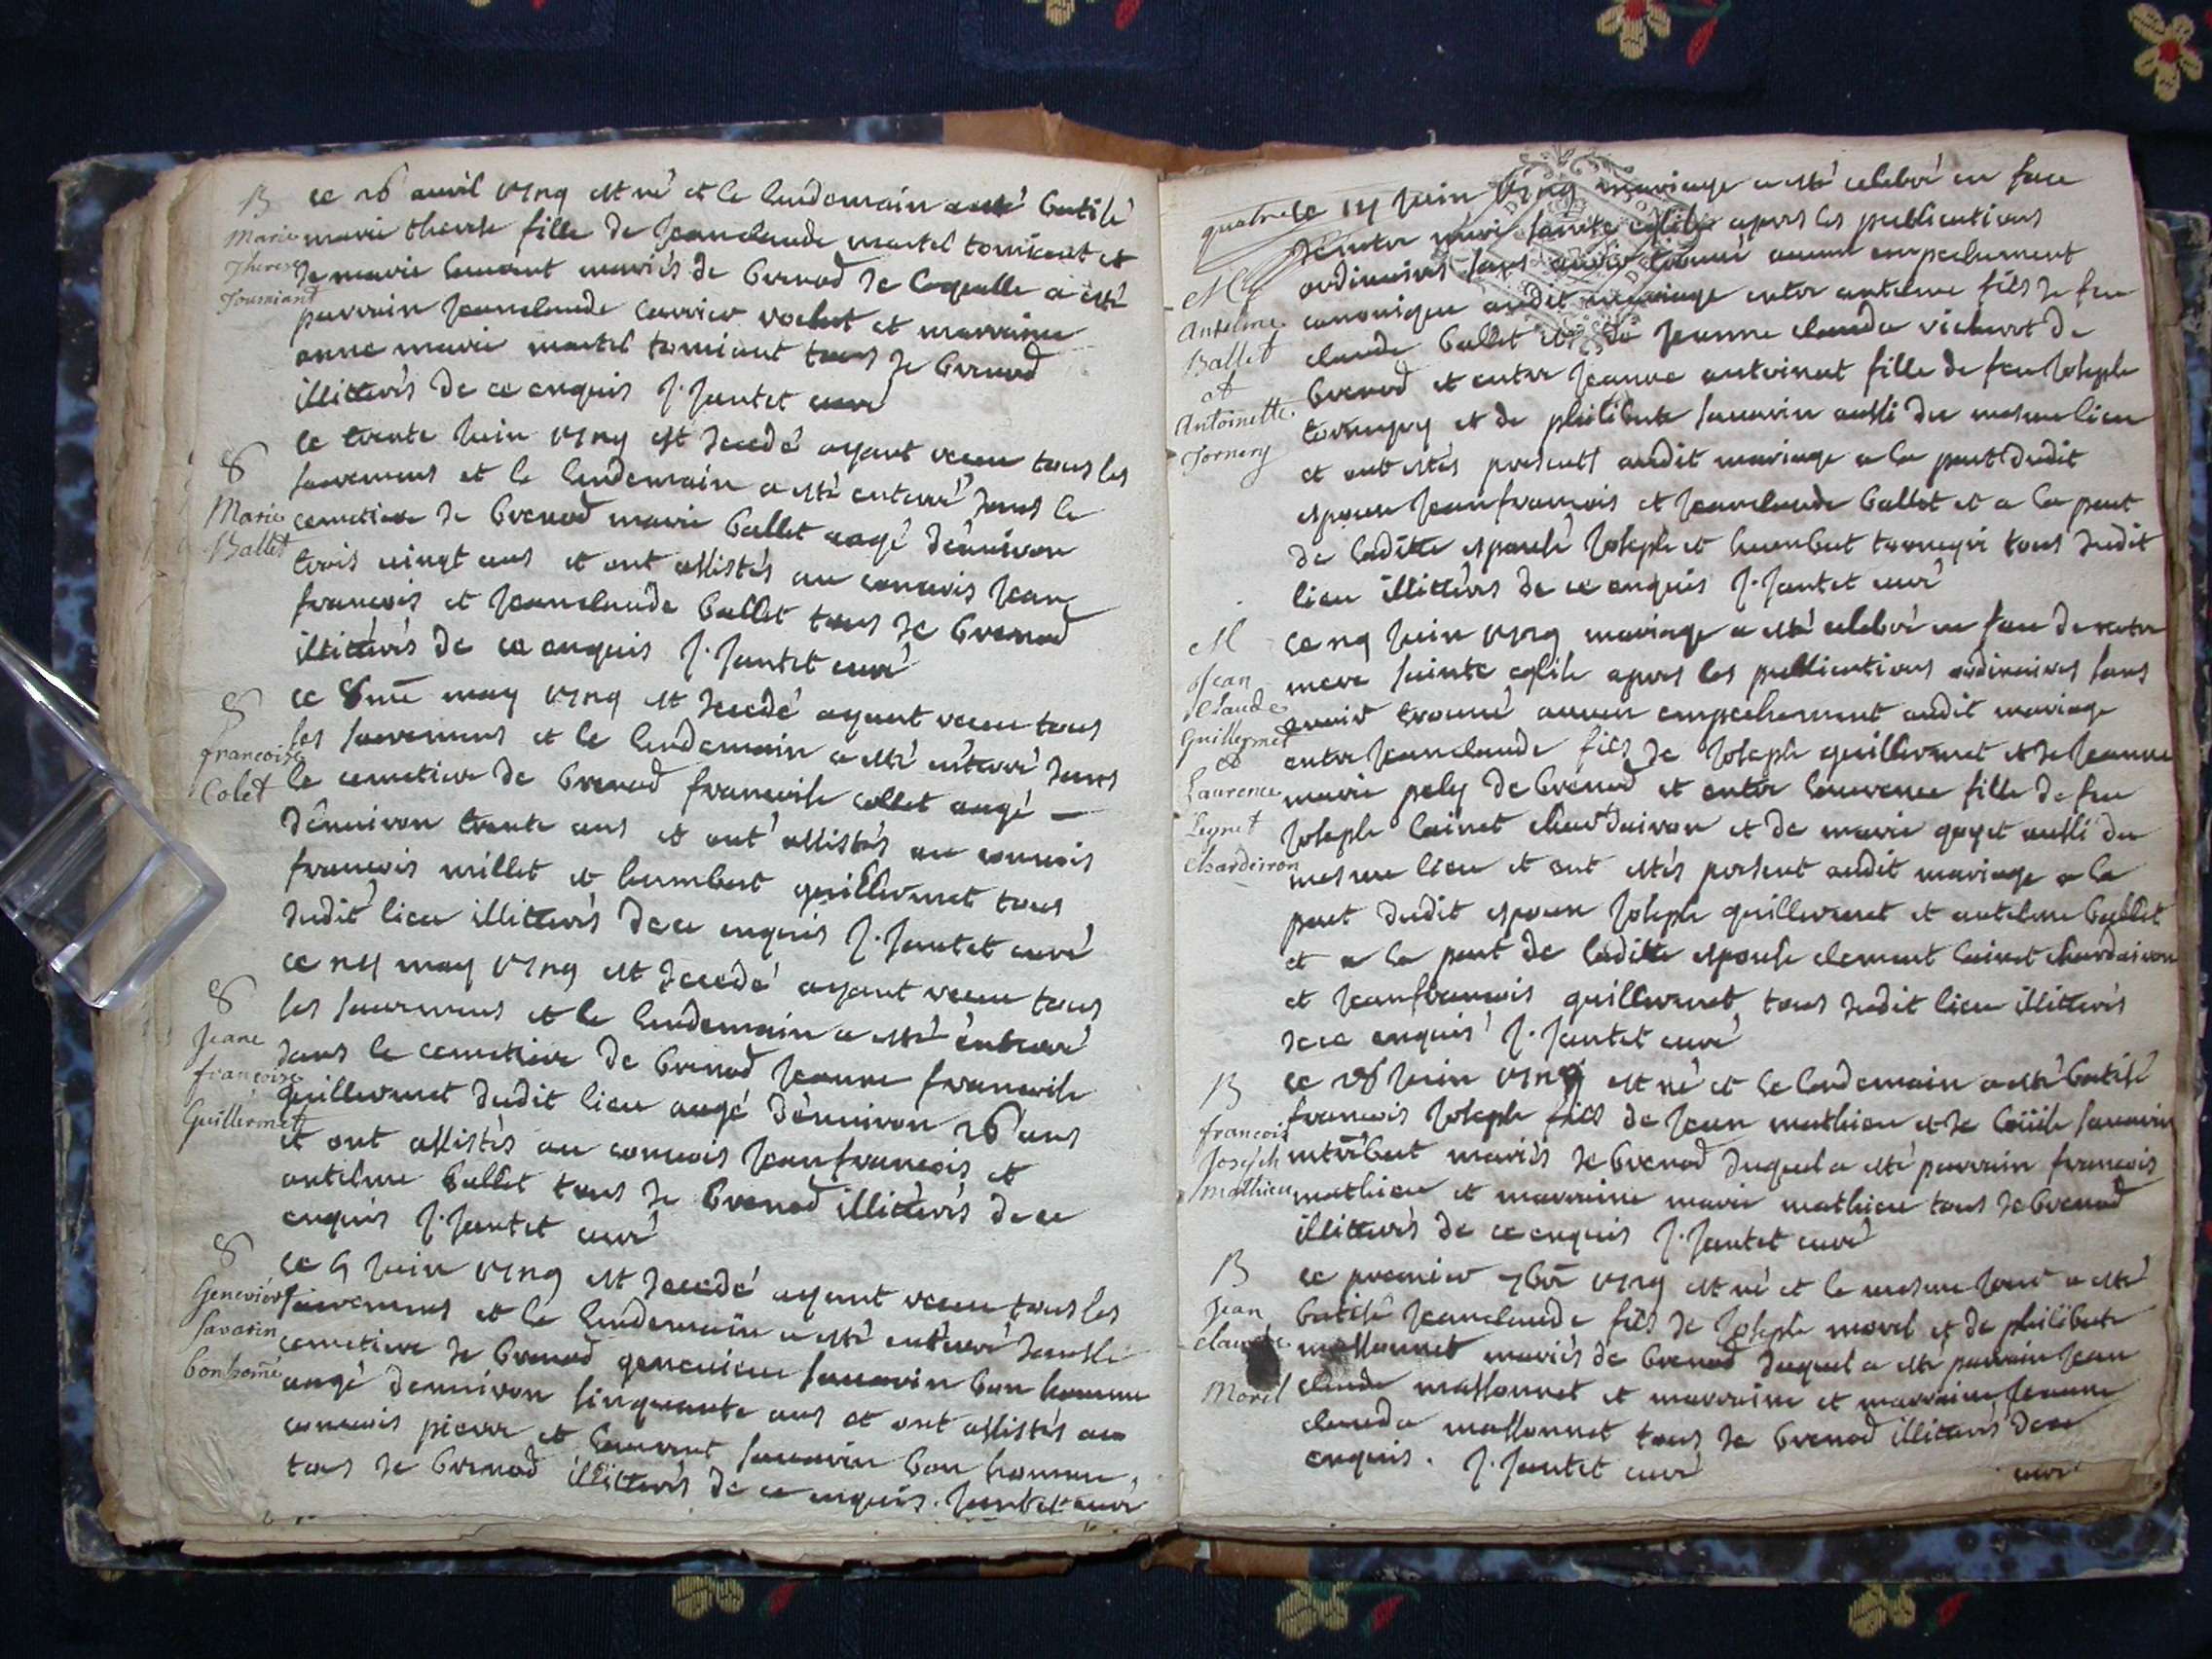 B
Marie
Therese
Tourniant
ce 26 avril 1729 est né et le lendemain batisé
marie therese fille de Jeanclaude martel torniant et
de marie mariés de brenod de Coquelle a esté
parrain Jeanclaude carrier rochet et marraine
anne marie martel torniant tous de brenod
illitterés de ce enquis J. Jantet curé
S
Marie
Ballet
le trente Juin 1729 est decedé ayant receu tous les
sacremens et le lendemain a esté enterré dans le
cemetiere de brenod marie ballet aagé denviron
trois vingt ans et ont assistés au convois Jean
francois et Jeanclaude ballet tous de brenod
illitterés de ce enquis J. Jantet curé
S
francoise
Colet
ce 8me may 1729 est decedé ayant receu tous
les sacremens et le lendemain a esté enterré dans
le cemetiere de brenod francoise collet aagé
denviron trente ans et ont assistés au convois
francois millet et humbert guillermet tous
dudit lieu illitterés de ce enquis J. Jantet curé
S
Jeane
francoise
Guillermet
ce may 1729 est decedé ayant receu tous
les sacremens et le lendemain a esté enterré
dans le cemetiere de brenod Jeanne francoise
guillermet dudit lieu aagé denviron 26 ans
et ont assistés au convois Jeanfrancois et
antelme ballet tous de brenod illitterés de ce
enquis J. Jantet curé
S
Genevieve
Savarin
bonhome
ce 9 Juin 1729 est decedé ayant receu tous les
sacremens et le lendemain a esté enterré dans le
cemetiere de brenod genevieve savarin bon homme
aagé denviron sinquante ans et ont assistés au
convois pierre et laurent savarin bon homme
tous de brenod illitterés de ce enquis. Jantet curé
M
Antelme
Ballet
et
Antoinette
Tornery
quatre le Juin 1729 mariage a esté celebré en face
de notre mere sainte eglise apres les publications
ordinaires sans avoir trouvé aucun empechement
canonique audit mariage entre antelme fils de feu
claude ballet et de Jeanne clauda vichert de
brenod et entre Jeanne antoinet fille de feu Joseph
et de philiberte savarin aussi du mesme lieu
et ont estés presents audit mariage a la part dudit
epoux Jeanfrancois et Jeanclaude ballet et a la part
de laditte epouse Joseph et humbert tous dudit
lieu illitterés de ce enquis J. Jantet curé
M
Jean
Claude
Guillermet
et
Laurence
Leynet
Chardeiron
ce Juin 1729 mariage a esté celebré en face de notre
mere sainte eglise apres les publications ordinaires sans
avoir trouvé aucun empechement audit mariage
entre Jeanclaude fils de Joseph guillermet et de Jeanne
marie pely de brenod et entre laurence fille de feu
Joseph lainet chardairon et de marie goyet aussi du
mesme lieu et ont estés present audit mariage a la
part dudit epoux Joseph guillermet et antelme ballet
et a la part de laditte epouse clement lainet chardairon
et Jeanfrancois guillermet tous dudit lieu illitterés
de ce enquis J. Jantet curé
B
francois
Joseph
Mathieu
ce Juin 1729 est né et le lendemain a esté batisé
francois Joseph fils de Jean mathieu et de savarin
mariés de brenod duquel a esté parrain francois
mathieu et marraine marie mathieu tous de brenod
illitterés de ce enquis J. Jantet curé
B
Jean
claude
Morel
ce premier 7bre 1729 est né et le mesme Jour a esté
batisé Jeanclaude fils de Joseph morel et de philiberte
massonnet mariés de brenod duquel a esté parrain Jean
claude massonnet et marraine et marraine Jeanne
clauda massonnet tous de brenod illitterés de ce
enquis. J. Jantet curé
curé